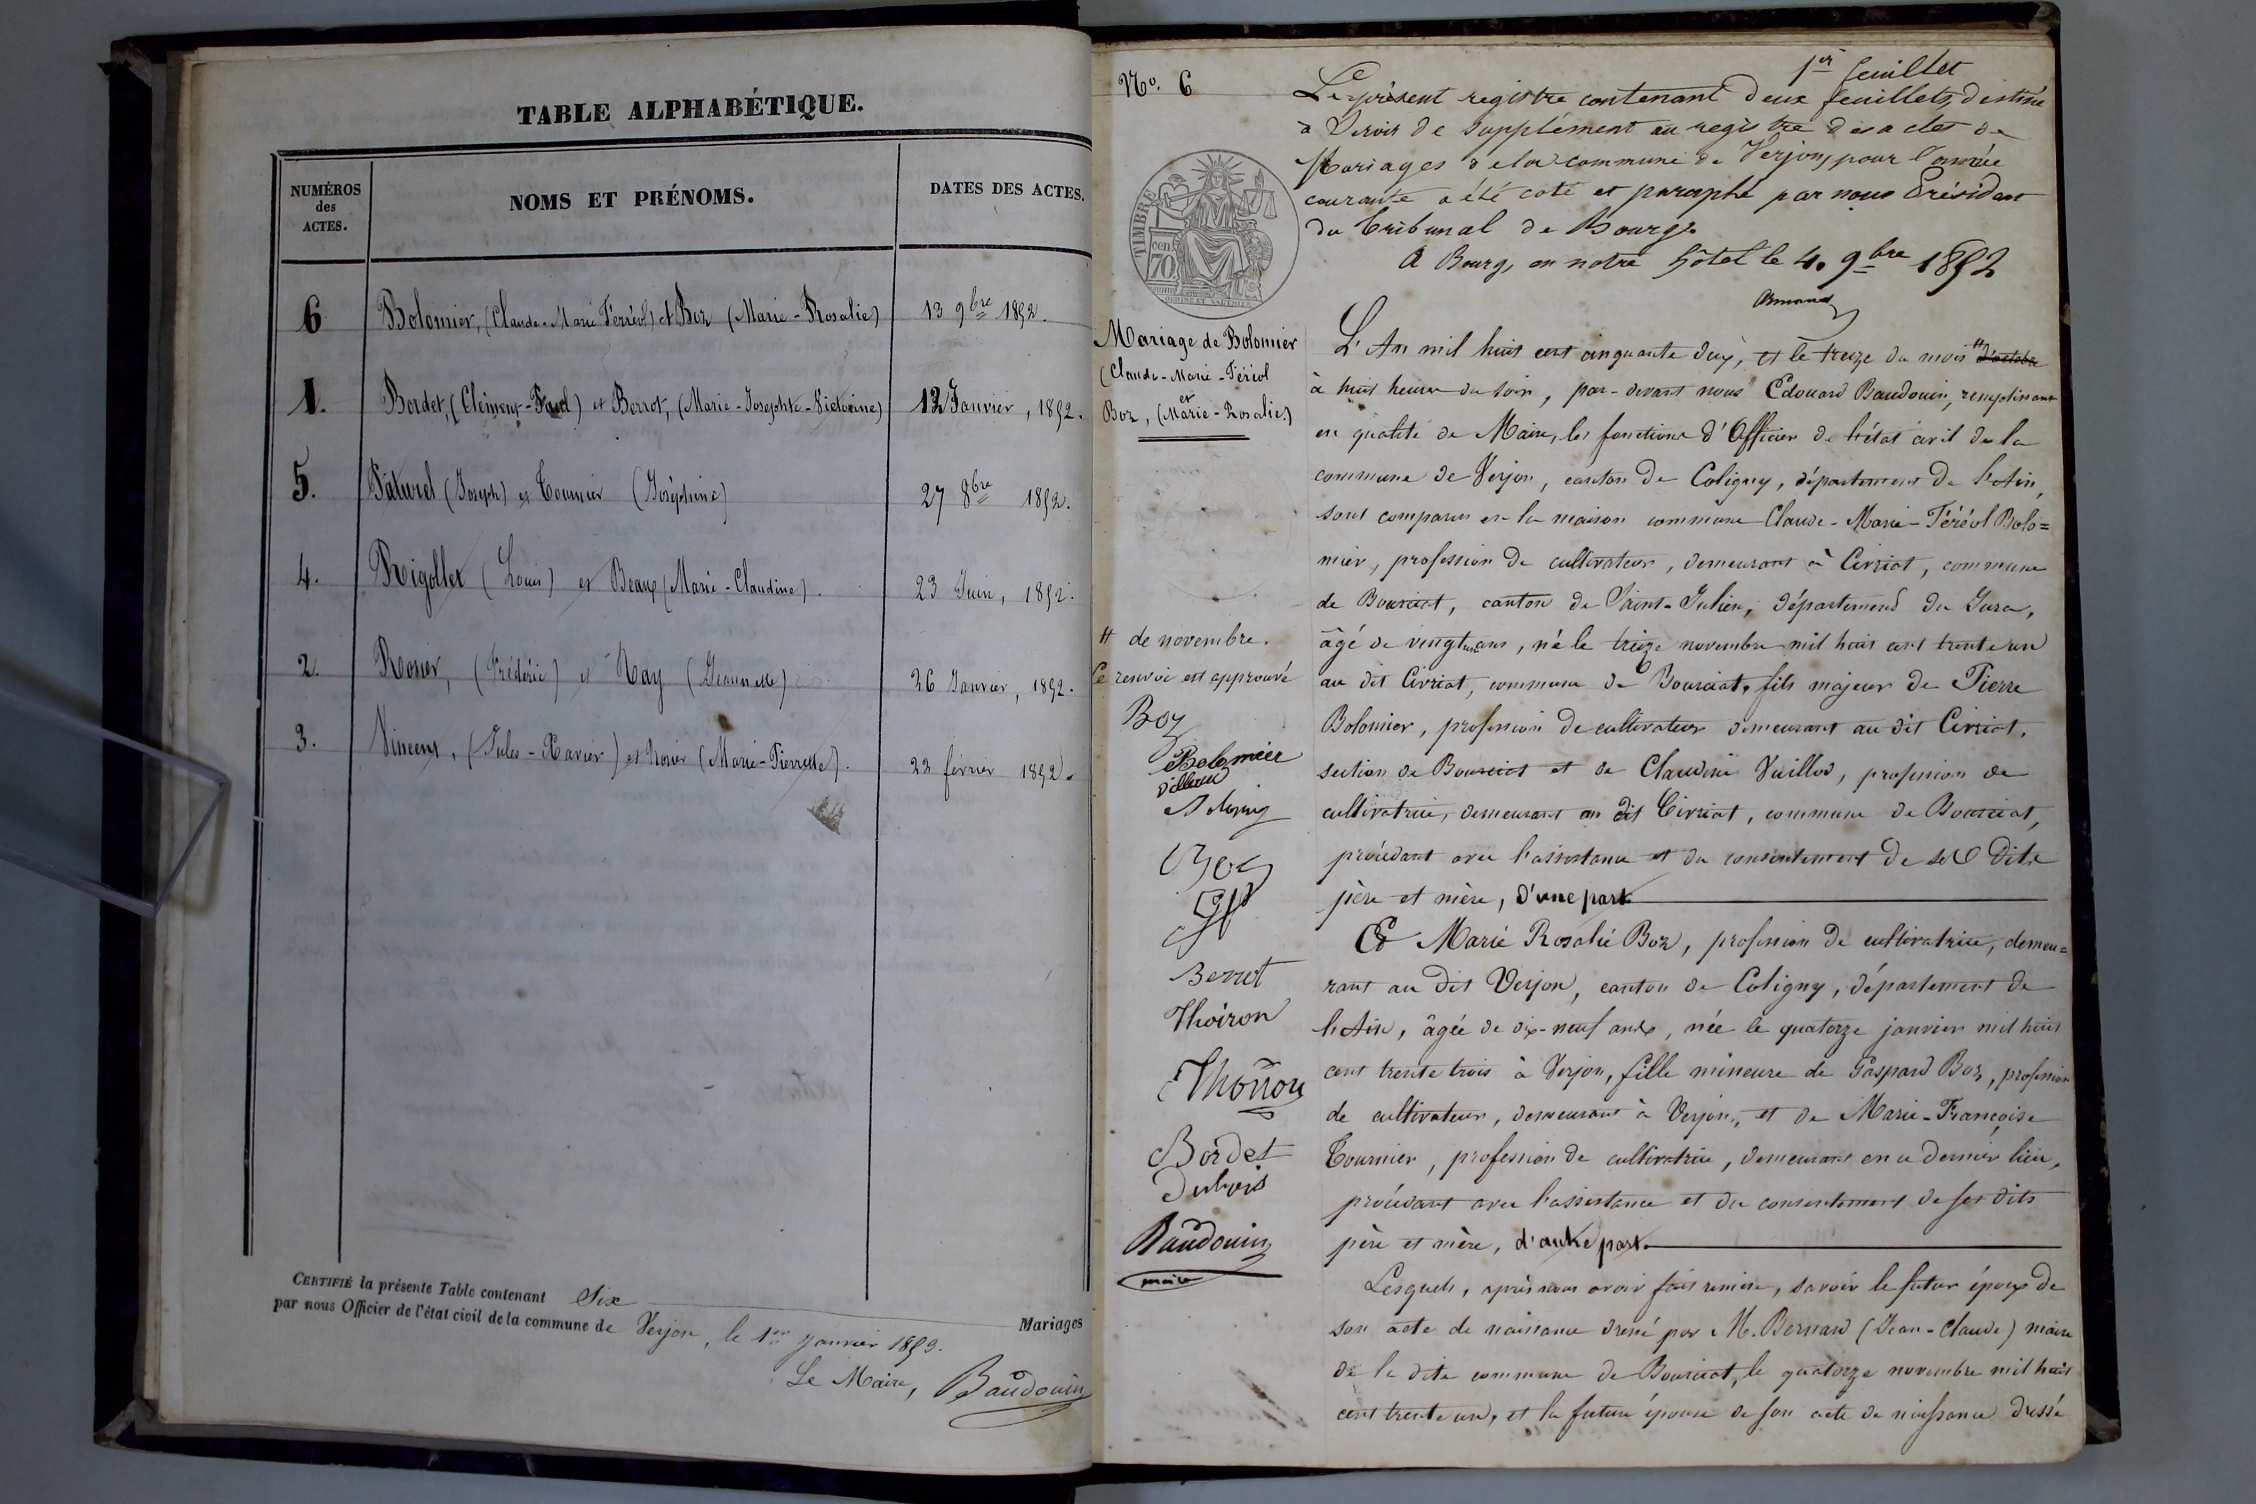 TABLE ALPHABÉTIQUE.
NUMÉROS
des
ACTES.
NOMS ET PRÉNOMS.
DATES DES ACTES.
6 Bolomier, (Claude-Marie Ferréol) et Boz (Marie-Rosalie) 13 9bre 1852.
1. Bordet, (Clément-Paul) et Berrot, (Marie-Josephte-Victorine) 12 Janvier, 1852.
5. Paturel (Joseph) et Tournier (Joséphine) 27 8bre 1852.
4. Rigollet (Louis) et Beaux (Marie-Claudine). 23 Juin, 1852.
2. Rosier, (Frédéric) et Nay (Jeannette) 26 Janvier, 1852.
3. Vincent, (Jules-Xavier) et Rosier (Marie-Pierrette). 22 février 1852.
CERTIFIÉ la présente Table contenant Six Mariages
par nous Officier de l'état civil de la commune de Verjon, le 1er Janvier 1853.
Le Maire, Baudouin
No. 6
1er feuillet
Le présent registre contenant deux feuillets, destiné
à servir de supplément au registre des actes de
Mariages de la commune de Verjon, pour l'année
courante a été coté et paraphé par nous Président
du Tribunal de Bourg.
A Bourg, en notre hôtel le 4. 9bre 1852
TIMBRE
cent
70
Mariage de Bolomier
(Claude-Marie-Féréol
et
Boz, (Marie-Rosalie)
L'An mil huit cent cinquante deux, et le treize du mois # d'octobre
à huit heures du soir, par-devant nous Edouard Baudouin, remplissant
en qualité de Maire, les fonctions d'Officier de l'état civil de la
commune de Verjon, canton de Coligny, département de l'Ain,
sont comparus en la maison commune Claude-Marie-Féréol Bolo=
mier, profession de cultivateur, demeurant à Civriat, commune
de Bourciat, canton de Saint-Julien, département du Jura,
âgé de vingt un ans, né le treize novembre mil huit cent trente un
au dit Civriat, commune de Bourciat, fils majeur de Pierre
Bolomier, profession de cultivateur demeurant au dit Civriat,
section de Bourciat et de Claudine Vuillod, profession de
cultivatrice, demeurant au dit Civriat, commune de Bourciat,
procédant avec l'assistance et du consentement de ses dits
père et mère, d'une part
Et Marie Rosalie Boz, profession de cultivatrice, demeu=
rant au dit Verjon, canton de Coligny, département de
l'Ain, âgée de dix-neuf ans, née le quatorze janvier mil huit
cent trente trois à Verjon, fille mineure de Gaspard Boz, profession
de cultivateur, demeurant à Verjon, et de Marie-Françoise
Tournier, profession de cultivatrice, demeurant en ce dernier lieu,
procédant avec l'assistance et du consentement de ses dits
père et mère, d'autre part.
Lesquels, après nous avoir fait remise, savoir le futur époux de
son acte de naissance dressé par M. Bernard (Jean-Claude) maire
de la dite commune de Bourciat, le quatorze novembre mil huit
cent trente un, et la future épouse de son acte de naissance dressé
# de novembre.
Ce renvoi est approuvé
Boz
Bolomier
Boz
Berrot
Thoiron
Thoiron
Bordet
Dubois
Baudouin
maire